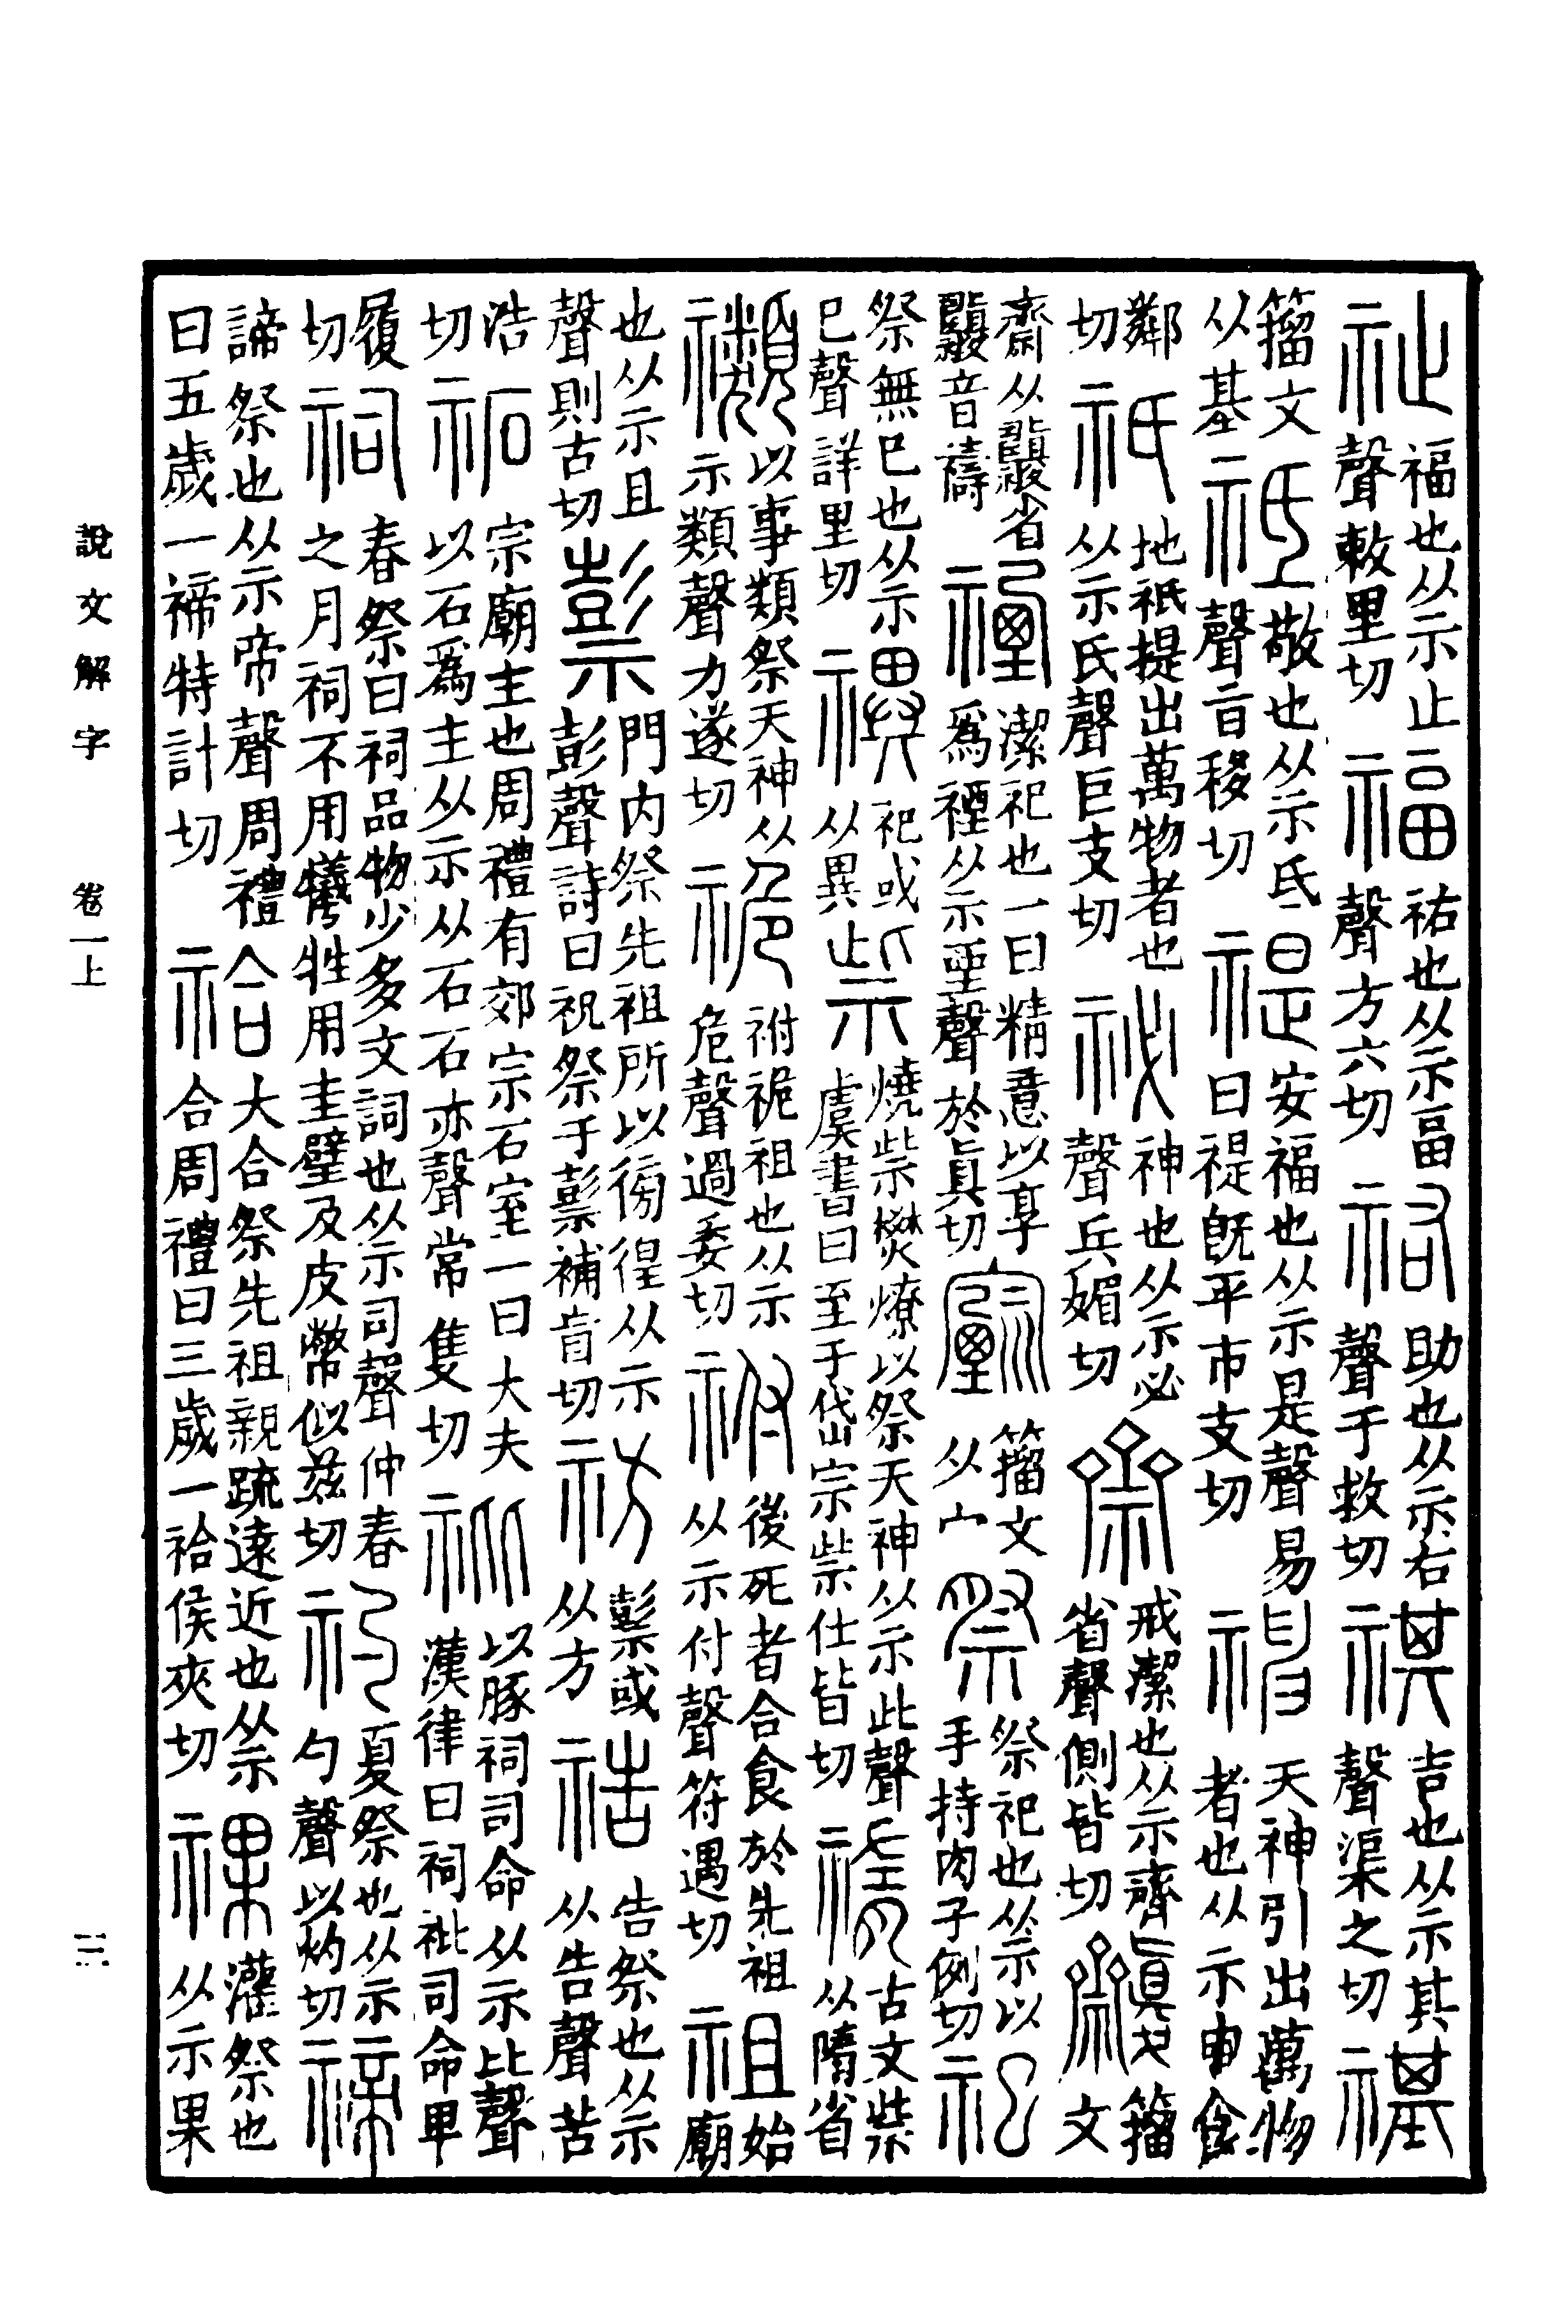 祉福也从示止聲敕里切福祐也从示畐聲方六切祐助也从示右聲于救切祺吉也从示其聲渠之切禥
籀文从基祗敬也从示氐聲旨移切禔安福也从示是聲易曰禔旣平市支切神天神引出萬物者也从示申食
鄰切祇地祇提出萬物者也从示氏聲巨支切祕神也从示必聲兵媚切齋戒潔也从示齊省聲側皆切籀文
齋从省音禱禋潔祀也一曰精意以享爲禋从示垔聲於眞切籀文从宀祭祭祀也从示以手持肉子例切祀
祭無巳也从示巳聲詳里切禩祀或从異祡燒祡燓燎以祭天神从示此聲虞書曰至于岱宗祡仕皆切古文祡从隋省
禷以事類祭天神从示類聲力遂切祪祔祪祖也从示危聲過委切祔後死者合食於先祖从示付聲符遇切祖始廟
也从示且聲則古切𥛱門内祭先祖所以徬徨从示彭聲詩曰祝祭于𥛱補盲切祊𥛱或从方祰告祭也从示告聲苦
浩切祏宗廟主也周禮有郊宗石室一曰大夫以石爲主从示从石石亦聲常隻切祉以豚祠司命从示比聲漢律曰祠祉司命卑
履切祠春祭曰祠品物少多文詞也从示司聲仲春之月祠不用犧牲用圭璧及皮幣似兹切礿夏祭也从示勺聲以灼切禘
諦祭也从示帝聲周禮曰五歲一禘特計切祫大合祭先祖親疏遠近也从示合周禮曰三歲一祫侯夾切祼灌祭也从示果
說文解字 卷一上 三